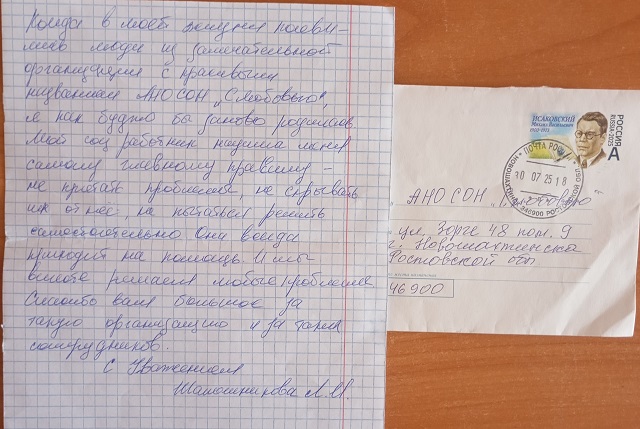 Когда в моей жизни появи-
лись люди из замечательной
организации с красивым
названием АНОСОН „С любовью",
я как будто бы заново родилась.
Мой соц работник научила меня
самому главному правилу –
не прятать проблемы, не скрывать
их от нас, не пытаться решить
самостоятельно. Она всегда
приходит на помощь. И мы
вместе решаем любые проблемы
Спасибо вам большое за
такую организацию и за таких
сотрудников.
С Уважением
Шапошникова Л.И.
ИСАКОВСКИЙ
Михаил Васильевич
РОССИЯ
RUSSIA·2025
А
ПОЧТА РОССИИ
10 07 25 18
346900
АНОСОН „С любовью
ул. Зорге 48 пом. 9
г. Новошахтинска
Ростовской обл
46900